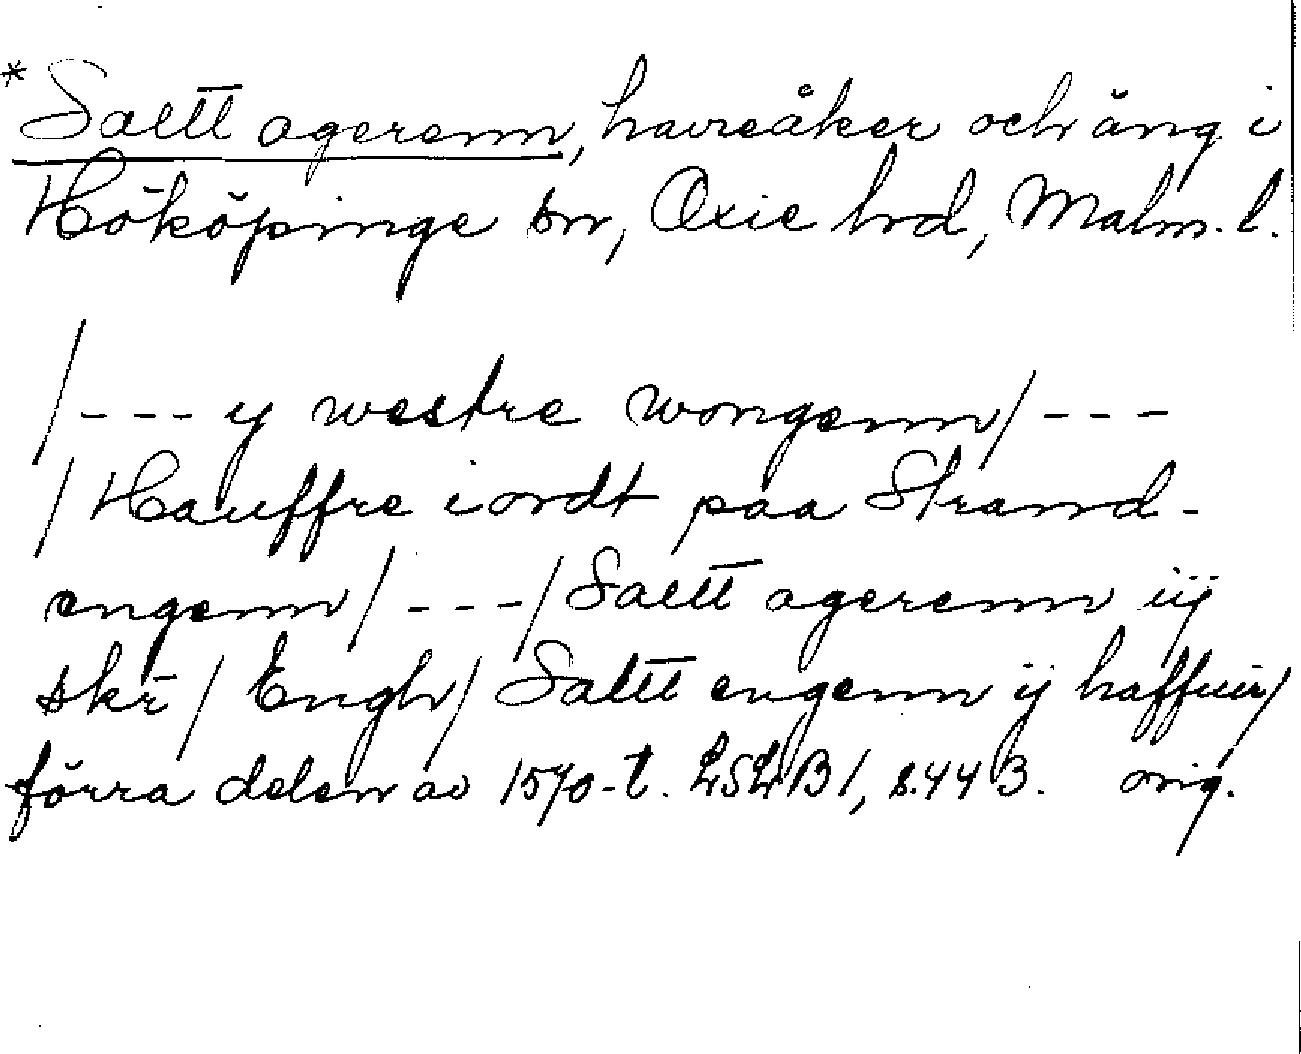 * Saltt agerenn, havreåker och äng i
Hököpinge sn, Oxie hd, Malm. l.
/--- y westre wongenn/ ---
/ Hauffre iordt paa Strand-
engenn/ ---/ Saltt agerenn iij
skr̄ / Engh/ Saltt engenn ij haffuir/
förra delen av 1570-t. LSLB1, s. 44 B. orig.